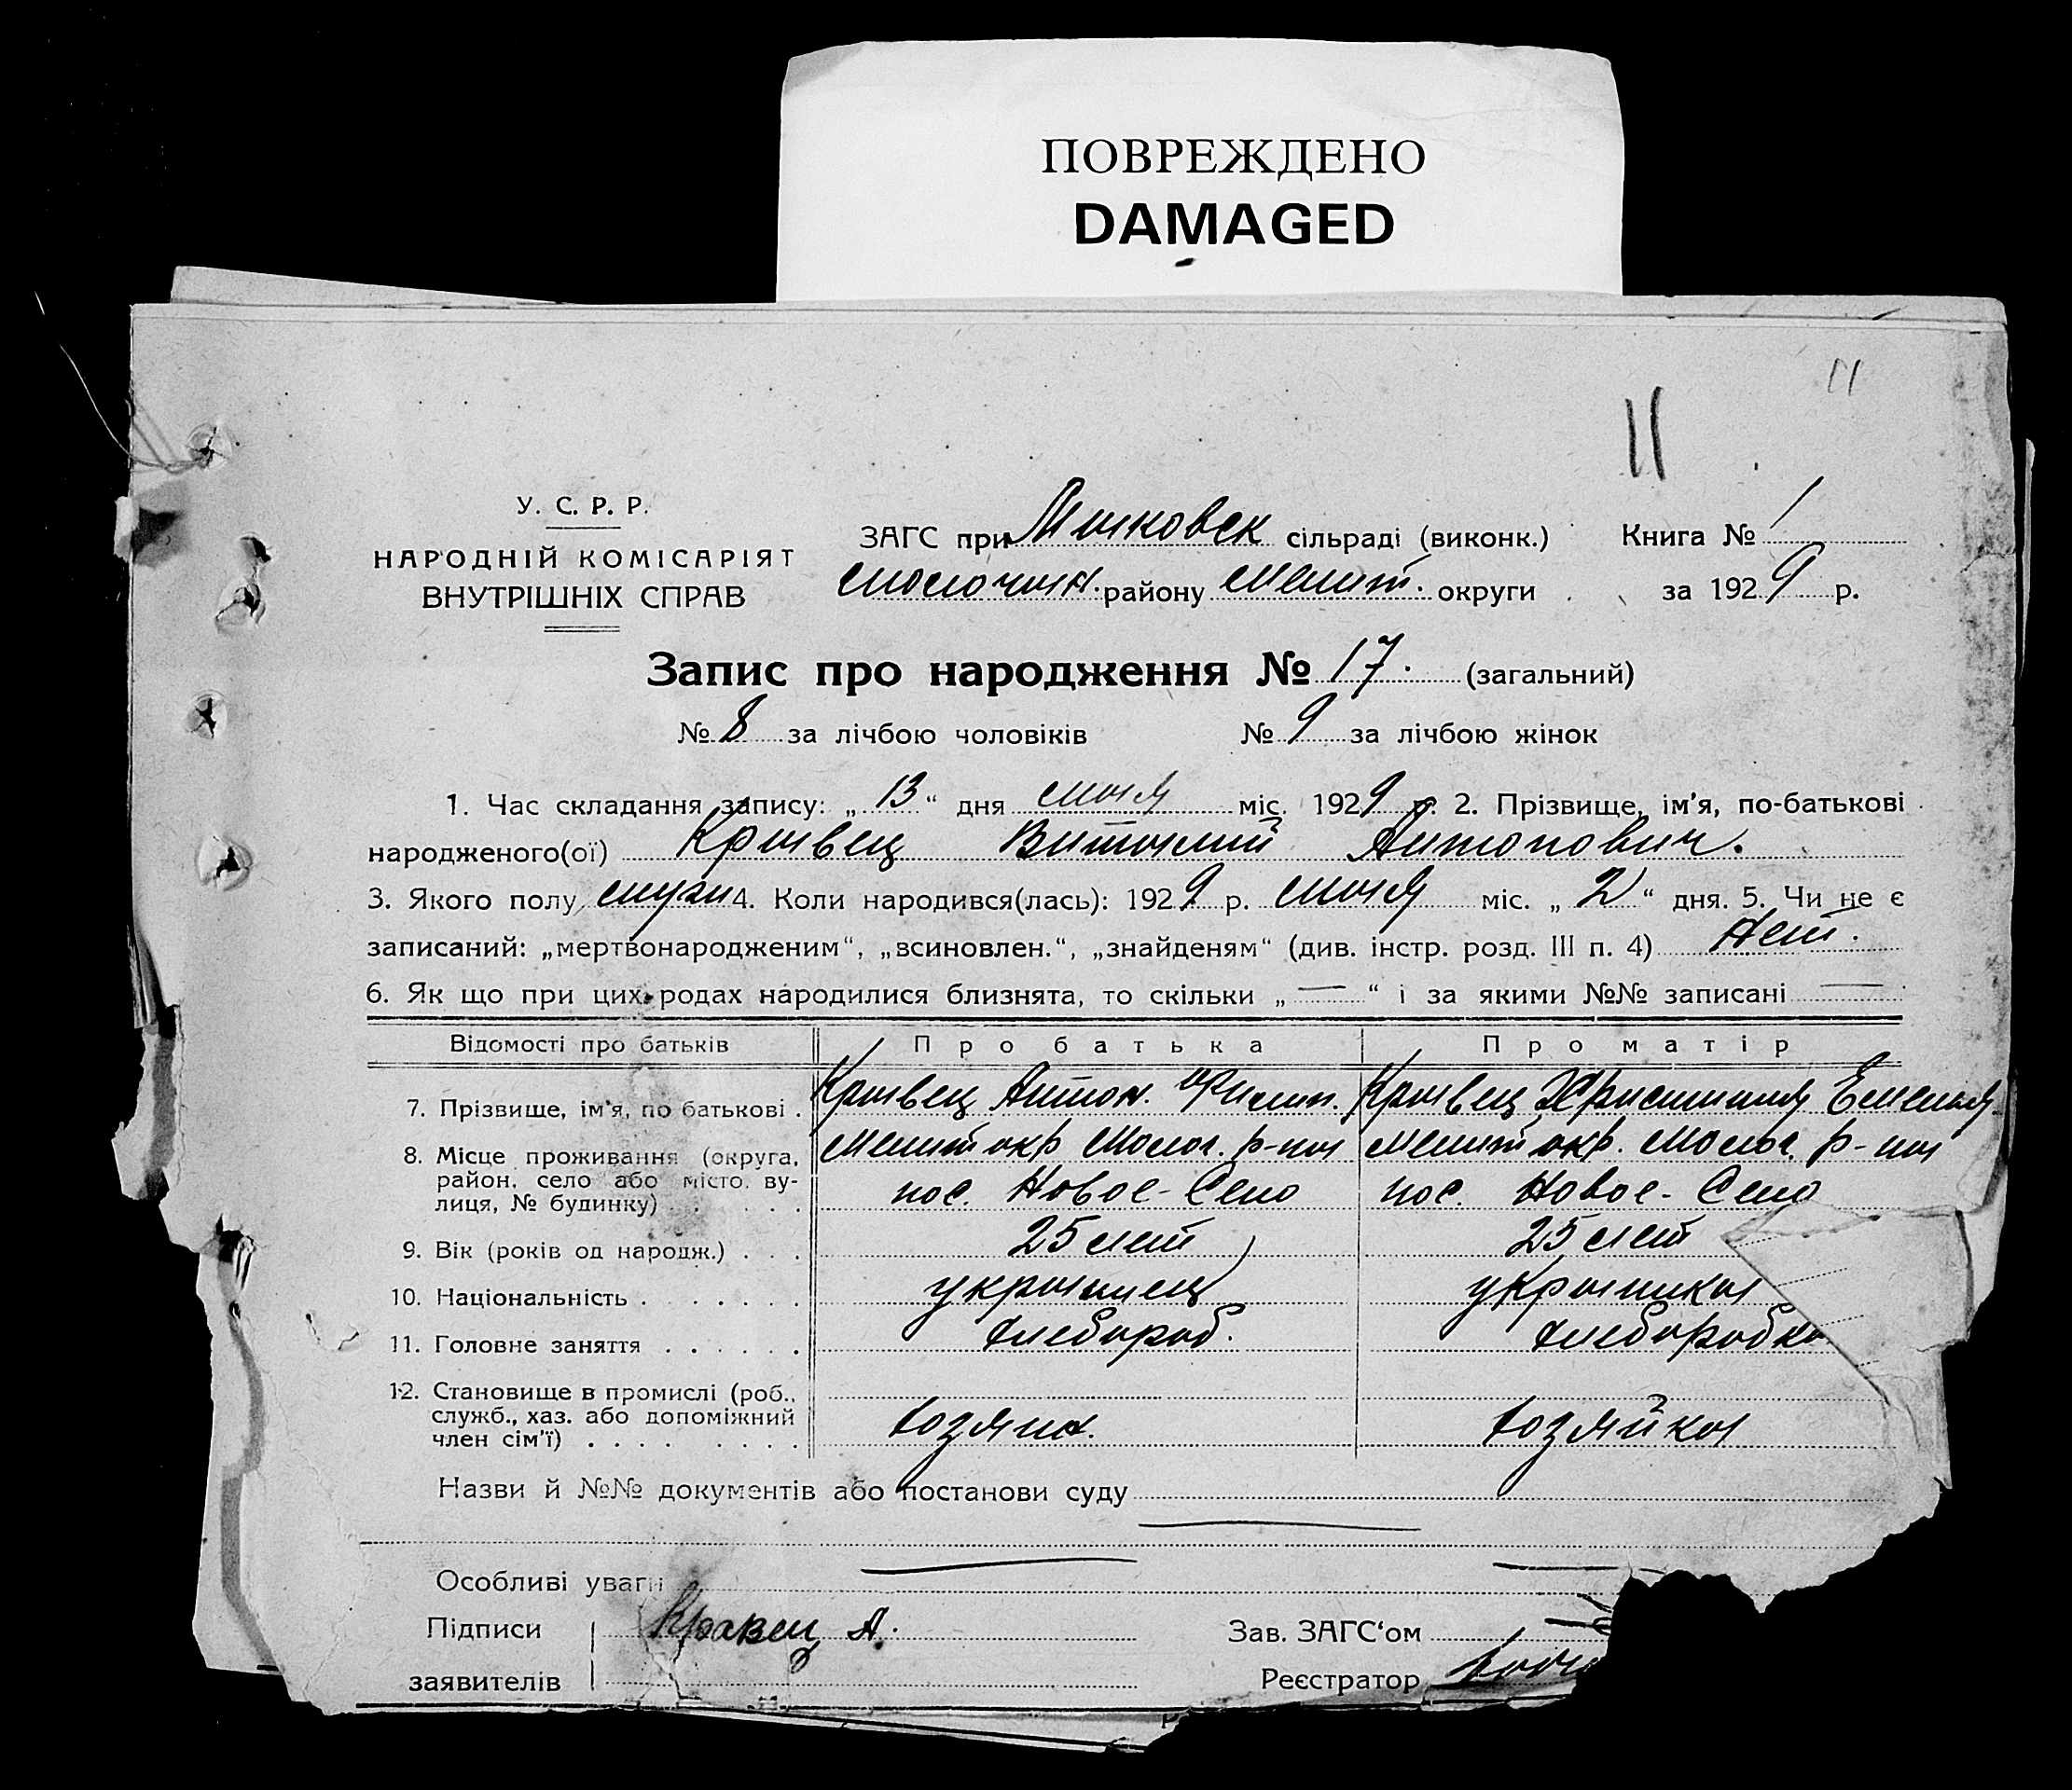 ПОВРЕЖДЕНО
DAMAGED
11
11
У. С. Р. Р.
НАРОДНІЙ КОМІСАРІЯТ
ВНУТРІШНІХ СПРАВ
ЗАГС при сільраді (виконк.) Книга № 1
молочан. району Мелит. округи за 1929 р.
Запис про народження № 17. (загальний)
№ 8 за лічбою чоловіків № 9 за лічбою жінок
1. Час складання запису: „ 13 “ дня мая міс. 1929 р. 2. Прізвище, ім'я, по-батькові
народженого(ої) Кравец Виталий Антонович.
3. Якого полу муж 4. Коли народився(лась): 1929 р. мая міс. „ 2 “ дня. 5. Чи не є
записаний: „мертвонародженим“, „всиновлен.“, „знайденям“ (див. інстр. розд. III п. 4) Нет.
6. Як що при цих родах народилися близнята, то скільки „ — “ і за якими №№ записані —
Відомості про батьків Про батька Про матір
7. Прізвище, ім'я, по батькові . Кравец Антон. Филип. Кравец Христиния Емельян
8. Місце проживання (округа, Мелит окр. Молоч. р-на Мелит окр. Молоч. р-на
район, село або місто, ву-
лиця, № будинку) . . . . . пос. Новое-Село пос. Новое-Село
9. Вік (років од народж.) . . . 25 лет 25 лет
10. Національність . . . . . . . украинец украинка
11. Головне заняття . . . . . . хлебороб. хлеборобка
12. Становище в промислі (роб.,
служб., хаз. або допоміжний
член сім'ї) . . . . . . . . хозяин. хозяйка
Назви й №№ документів або постанови суду
Особливі уваги
Підписи Кравец А. Зав. ЗАГС‘ом
заявителів Реєстратор